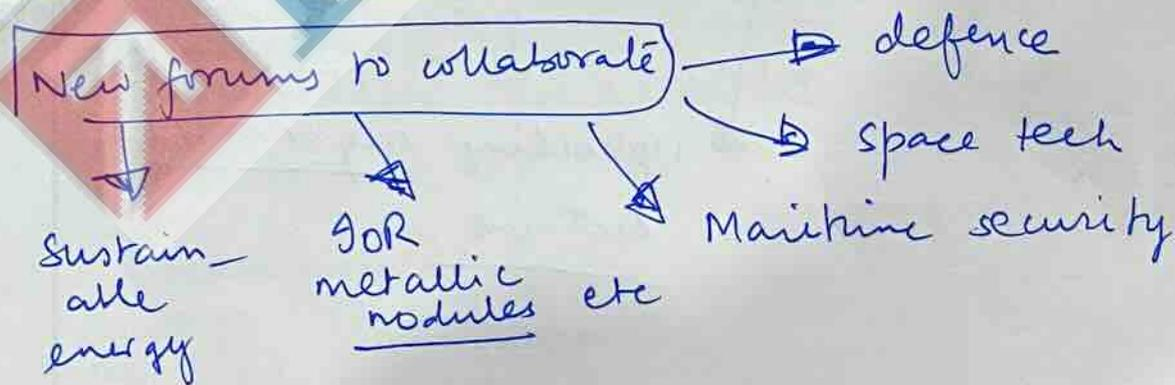 New forums to collaborate
defence
space tech
Maritime security
Sustain-
able
energy
IOR
metallic
nodules etc